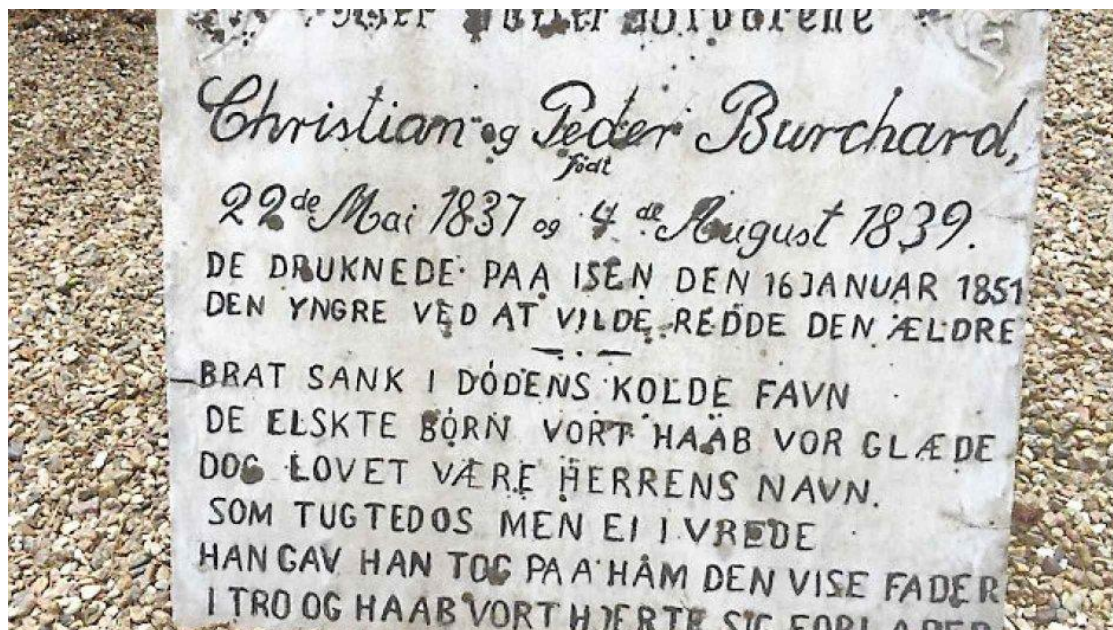 Christian og Peder Burchard,
födt
22de Mai 1837 og 4de August 1839.
DE DRUKNEDE PAA ISEN DEN 16 JANUAR 1851
DEN YNGRE VED AT VILDE REDDE DEN ÆLDRE
BRAT SANK I DÖDENS KOLDE FAVN
DE ELSKTE BÖRN VORT HAAB VOR GLÆDE
DOG LOVET VÆRE HERRENS NAVN.
SOM TUGTEDOS MEN EI I VREDE
HAN GAV HAN TOG PAA HAM DEN VISE FADER
I TRO OG HAAB VORT HJERTE SIG FORLADER